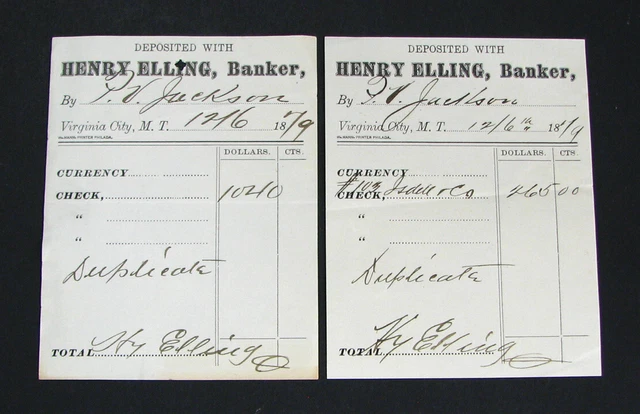 DEPOSITED WITH
HENRY ELLING, Banker,
By T. V. Jackson
Virginia City, M. T. 12/6 1879
DOLLARS. CTS.
CURRENCY
CHECK, 1040
"
"
Duplicate
TOTAL Hy Elling
DEPOSITED WITH
HENRY ELLING, Banker,
By T. V. Jackson
Virginia City, M. T. 12/6 1879
DOLLARS. CTS.
CURRENCY
CHECK, #103 & Co 265 00
"
"
Duplicate
TOTAL Hy Elling